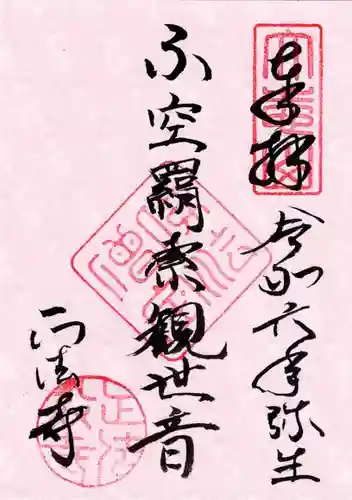 奉拝
令和六年弥生
不空羂索観世音
正法寺